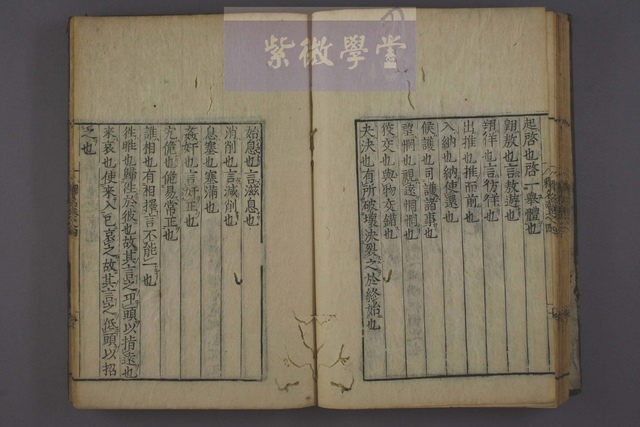 紫微學堂
起啓也啓一舉體也
翱敖也言敖遊也
翔佯也言彷徉也
出推也推而前也
入納也納使還也
候護也司護諸事也
望惘也視遠惘惘也
狡交也與物交錯也
夬決也有所破壞決裂之於終始也
始息也言滋息也
消削也言減削也
息塞也塞滿也
姦奸也言奸正也
宄佹也佹易常正也
誰相也有相擇言不能一也
往暀也歸暀於彼也故其言之卬頭以指遠也
來哀也使來入己哀之故其言之低頭以招
之也